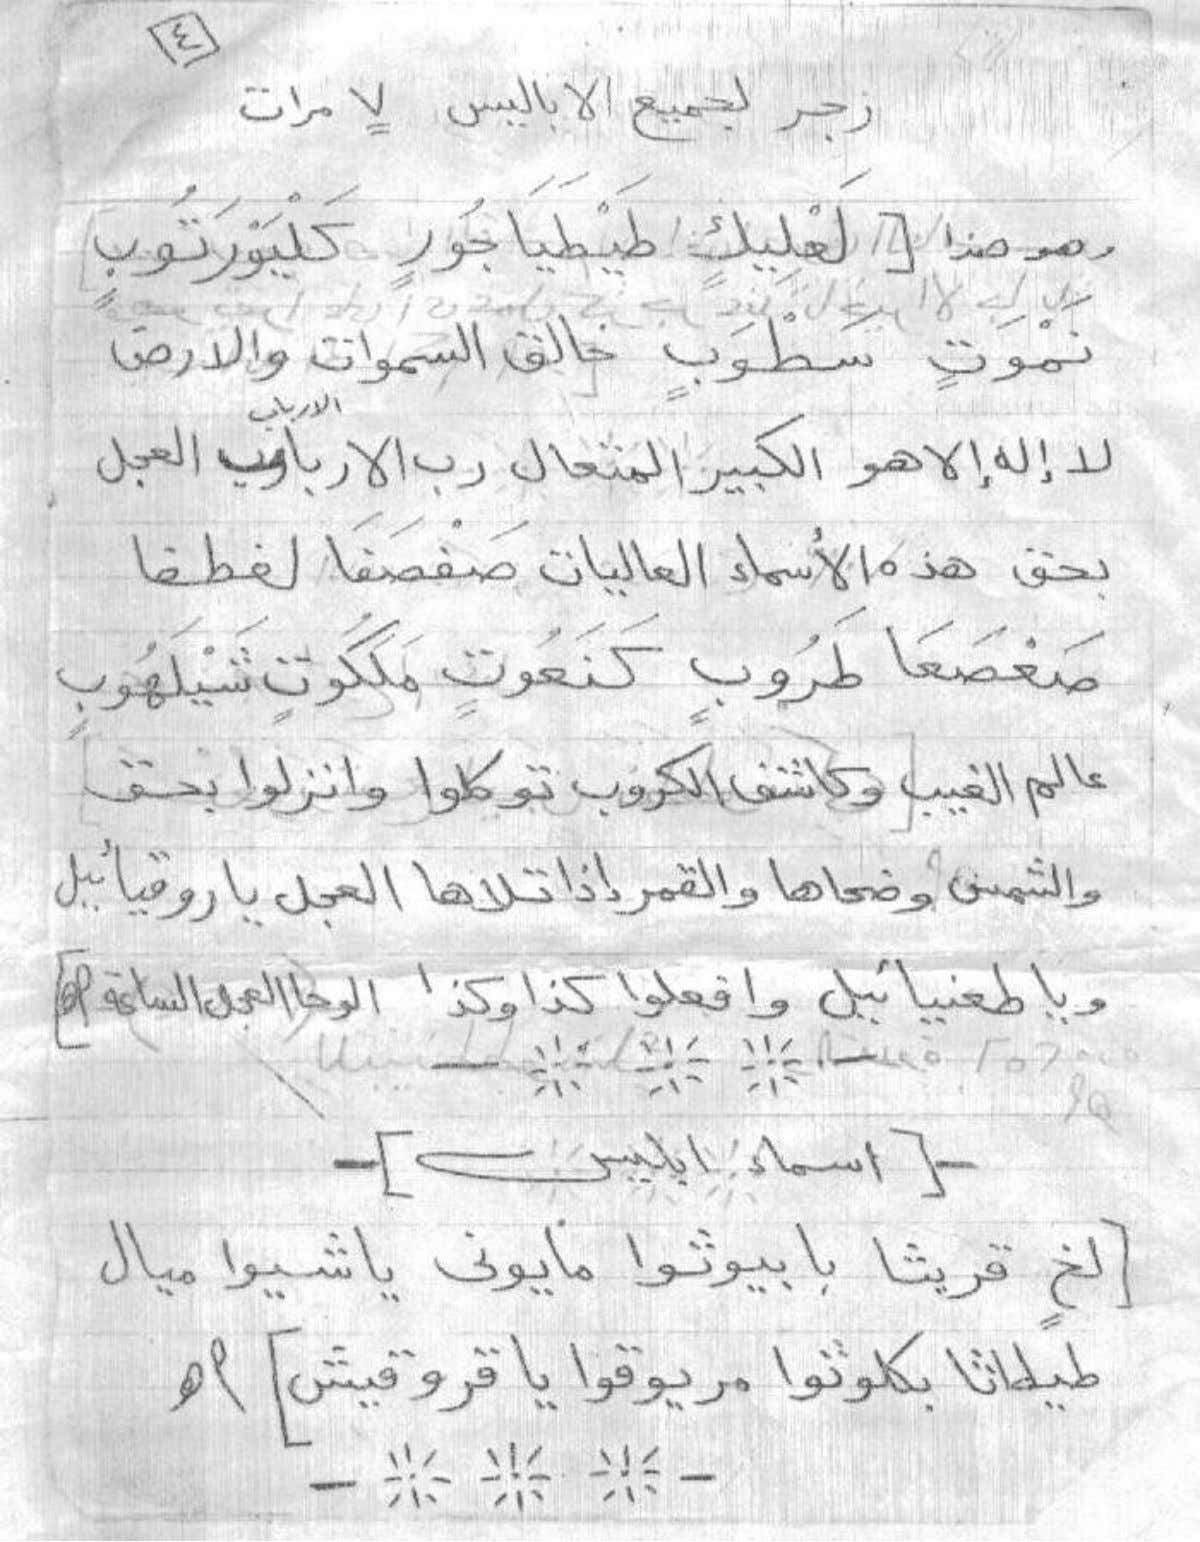 ٤
زجر لجميع الاباليس ٧ مرات
وهو هذا [ لَعْلِيكٍ طَيْطيَا جُورٍ كَلْيَوْرَتُوبٍ
نَمْوَتٍ سَطْوَبٍ خالق السموات والارض
لا إله إلا هو الكبير المتعال رب الارباب العجل
الارباب
بحق هذه الأسماء العاليات صَفْصَفَا لفطفا
صَعْصَعَا طَرُوبٍ كَنَعُوتٍ مَلَكُوتٍ شَيْلَهُوبٍ
عالم الغيب وكاشف الكروب توكلوا وانزلوا بحق
والشمس وضحاها والقمر إذا تلاها العجل يا روقيائيل
ويا طغيائيل وافعلوا كذا وكذا الوحا العجل الساعة اه]
-[ اسماء ابليس ]-
[لخٍ قريثا بابيوثوا مايونى ياشيوا ميال
طيطاثا بكلوثوا مريوقوا يا قروقيش] اه